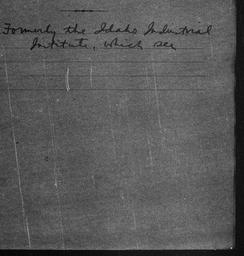 Formerly the Idaho Industrial
Institute, which see